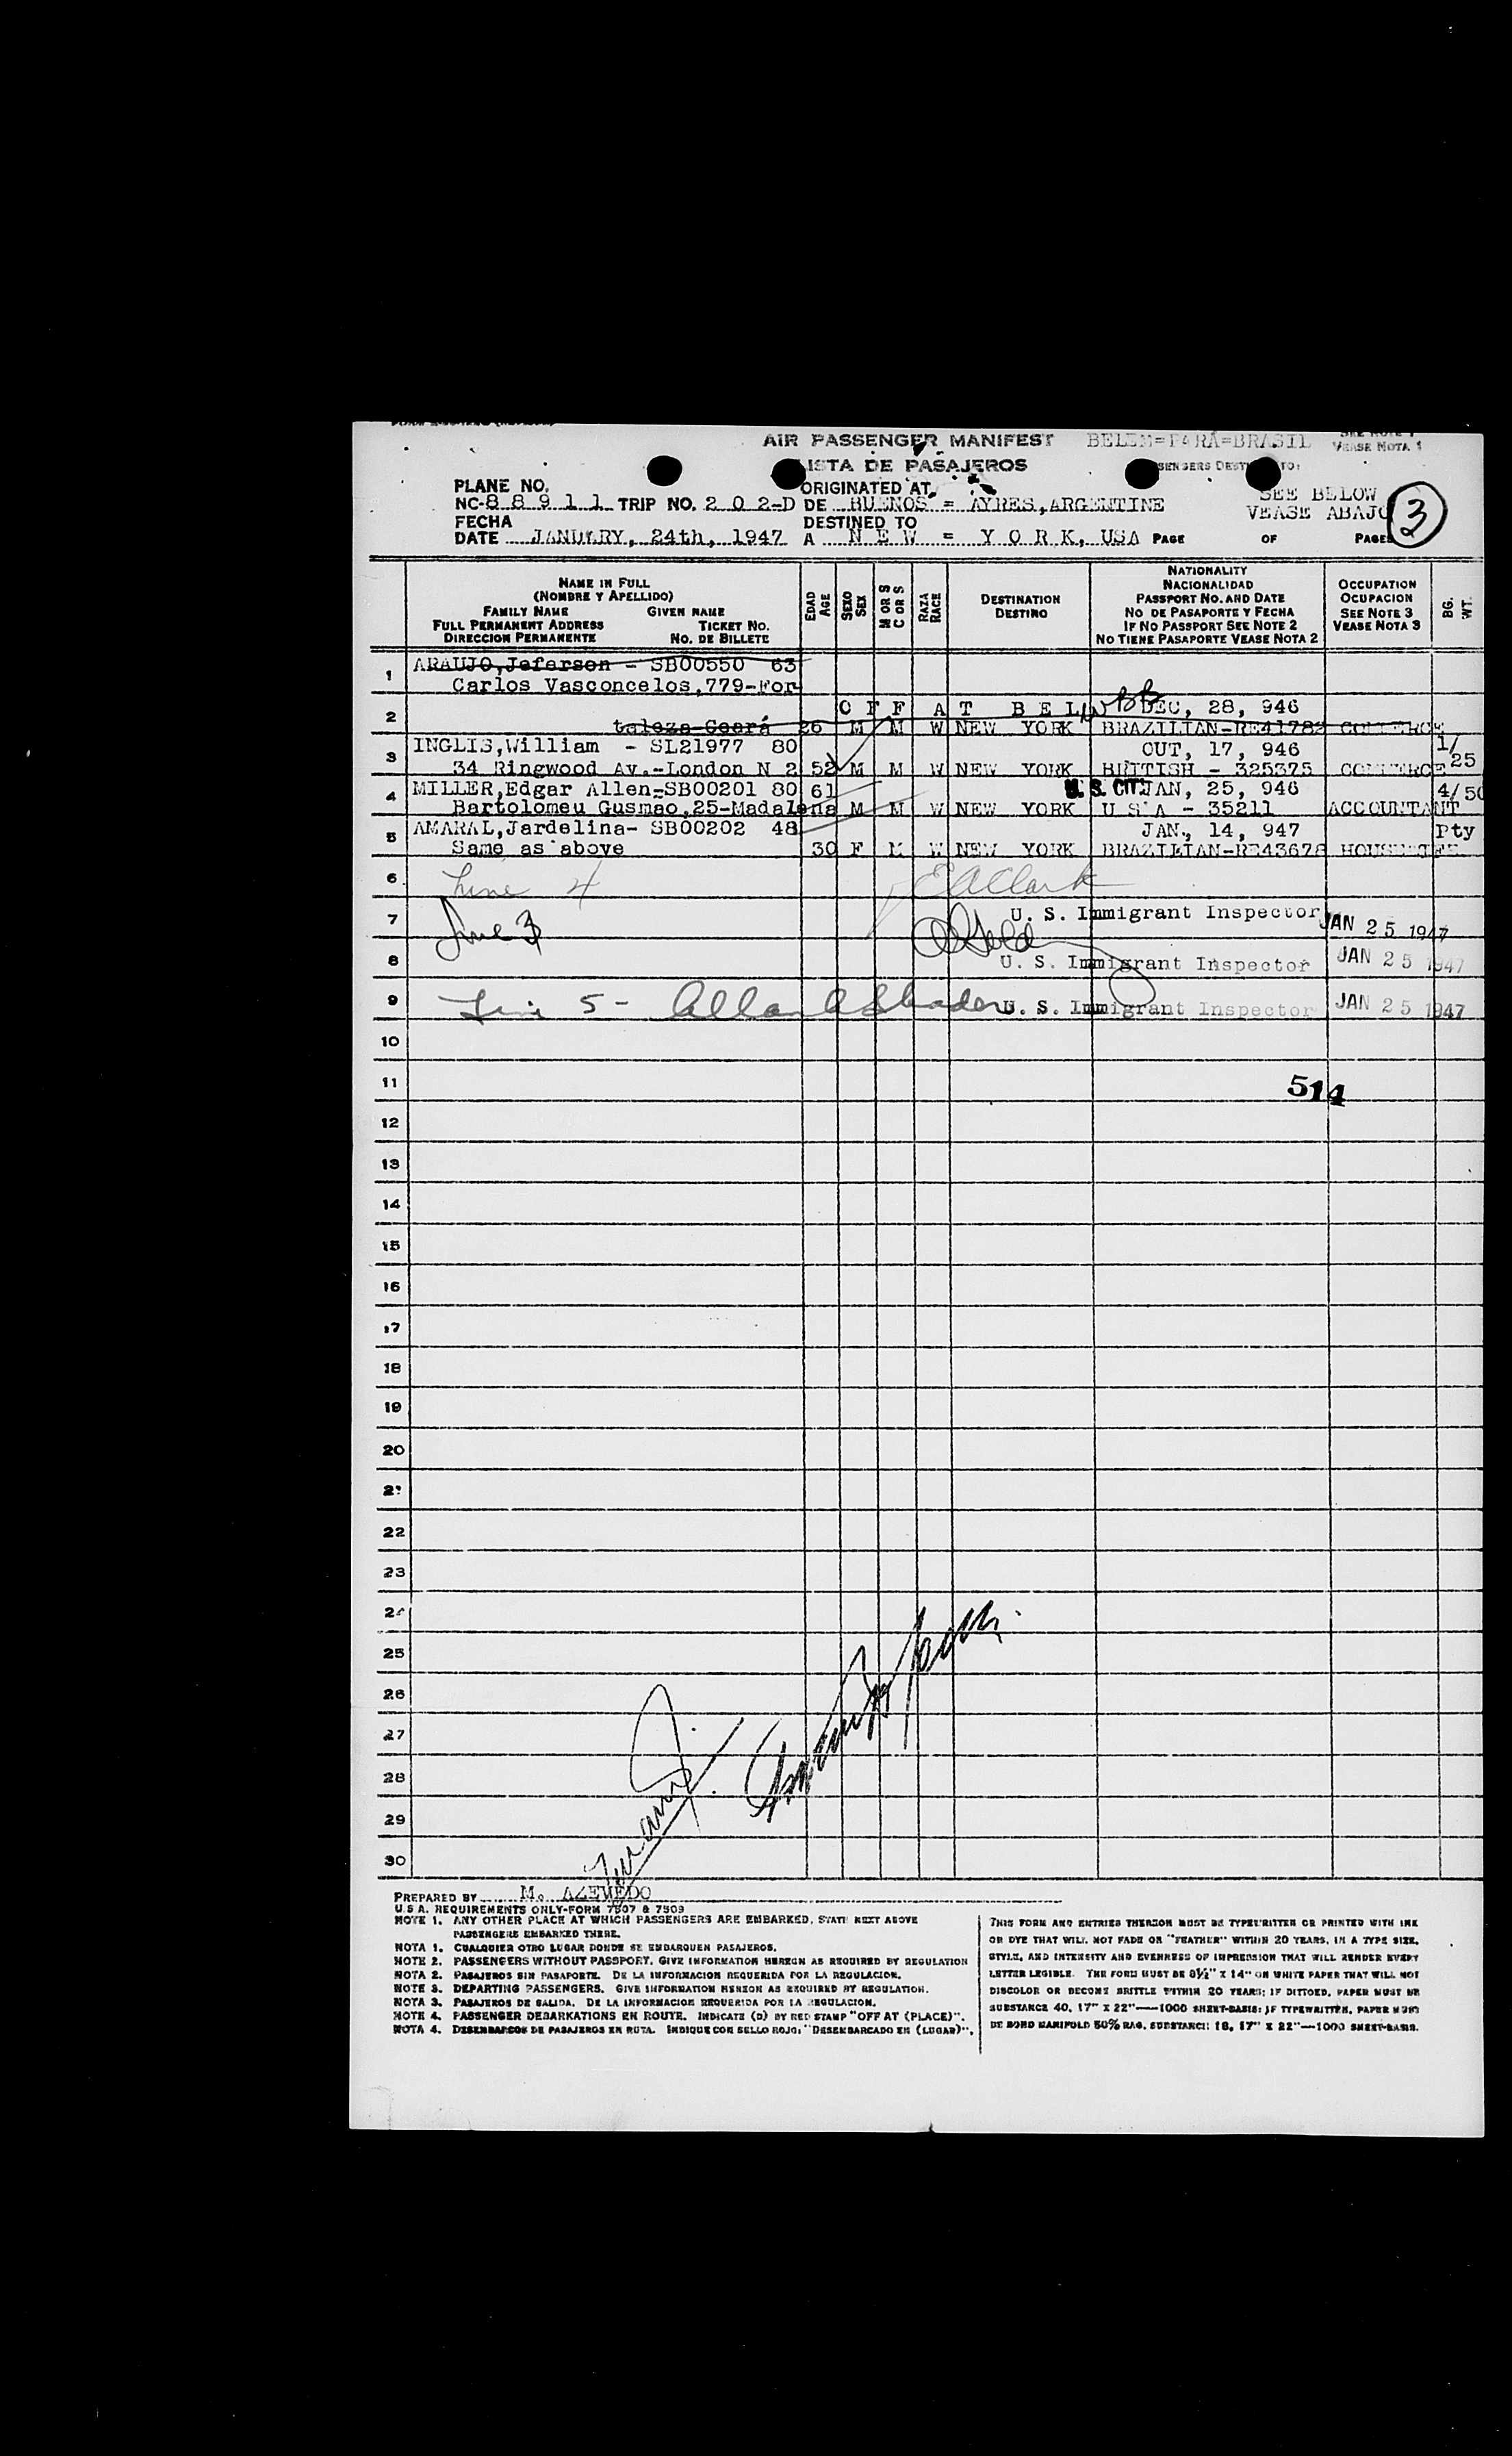 AIR PASSENGER MANIFEST BELEM=PARÁ=BRASIL
VEASE NOTA 1
LISTA DE PASAJEROS
PLANE NO. ORIGINATED AT
NC-88911 TRIP NO. 202-D DE BUENOS = AYRES, ARGENTINE SEE BELOW
VEASE ABAJO 3
FECHA DESTINED TO
DATE JANUARY, 24th, 1947 A NEW = YORK, USA PAGE OF PAGES
NAME IN FULL
(NOMBRE Y APELLIDO)
FAMILY NAME GIVEN NAME
FULL PERMANENT ADDRESS TICKET NO.
DIRECCION PERMANENTE NO. DE BILLETE
EDAD AGE
SEXO SEX
M OR S C OR S
RAZA RACE
DESTINATION
DESTINO
NATIONALITY
NACIONALIDAD
PASSPORT NO. AND DATE
NO DE PASAPORTE Y FECHA
IF NO PASSPORT SEE NOTE 2
NO TIENE PASAPORTE VEASE NOTA 2
OCCUPATION
OCUPACION
SEE NOTE 3
VEASE NOTA 3
BG. WT.
1 ARAUJO,Jeferson - SB00550 63
Carlos Vasconcelos,779-For
2 OFF AT BELEM DEC, 28, 946
taleza Ceará 26 M M W NEW YORK BRAZILIAN-RE41782 COMMERCE
3 INGLIS,William - SL21977 80 OUT, 17, 946 1/
34 Ringwood Av.-London N 2 52 M M W NEW YORK BRITISH - 325375 COMMERCE 25
4 MILLER,Edgar Allen-SB00201 80 61 U. S. CIT. JAN, 25, 946 4/50
Bartolomeu Gusmao,25-Madalena M M W NEW YORK U S A - 35211 ACCOUNTANT
5 AMARAL,Jardelina- SB00202 48 JAN., 14, 947 Pty
Same as above 30 F M W NEW YORK BRAZILIAN-RE43678 HOUSEWIFE
6 Line 4 E A Clark
7 Line 3 U. S. Immigrant Inspector JAN 25 1947
8 U. S. Immigrant Inspector JAN 25 1947
9 Line 5- U. S. Immigrant Inspector JAN 25 1947
10
11 514
12
13
14
15
16
17
18
19
20
21
22
23
24
25
26
27
28
29
30
PREPARED BY M. AZEVEDO
U.S.A. REQUIREMENTS ONLY-FORM 7507 & 7509
NOTE 1. ANY OTHER PLACE AT WHICH PASSENGERS ARE EMBARKED, STATE NEXT ABOVE
PASSENGERS EMBARKED THERE.
NOTA 1. CUALQUIER OTRO LUGAR DONDE SE EMBARQUEN PASAJEROS.
NOTE 2. PASSENGERS WITHOUT PASSPORT. GIVE INFORMATION HEREON AS REQUIRED BY REGULATION
NOTA 2. PASAJEROS SIN PASAPORTE. DE LA INFORMACION REQUERIDA POR LA REGULACION.
NOTE 3. DEPARTING PASSENGERS. GIVE INFORMATION HEREON AS REQUIRED BY REGULATION.
NOTA 3. PASAJEROS DE SALIDA. DE LA INFORMACION REQUERIDA POR LA REGULACION.
NOTE 4. PASSENGER DEBARKATIONS EN ROUTE. INDICATE (D) BY RED STAMP "OFF AT (PLACE)".
NOTA 4. DESEMBARCOS DE PASAJEROS EN RUTA. INDIQUE CON SELLO ROJO: "DESEMBARCADO EN (LUGAR)".
THIS FORM AND ENTRIES THEREON MUST BE TYPEWRITTEN OR PRINTED WITH INK
OR DYE THAT WILL NOT FADE OR "FEATHER" WITHIN 20 YEARS, IN A TYPE SIZE,
STYLE, AND INTENSITY AND EVENNESS OF IMPRESSION THAT WILL RENDER EVERY
LETTER LEGIBLE. THE FORM MUST BE 8½" X 14" ON WHITE PAPER THAT WILL NOT
DISCOLOR OR BECOME BRITTLE WITHIN 20 YEARS; IF DITTOED, PAPER MUST BE
SUBSTANCE 40, 17" X 22"—1000 SHEET-BASIS; IF TYPEWRITTEN, PAPER MUST
BE BOND MANIFOLD 50% RAG, SUBSTANCE 18, 17" X 22"—1000 SHEET-BASIS.